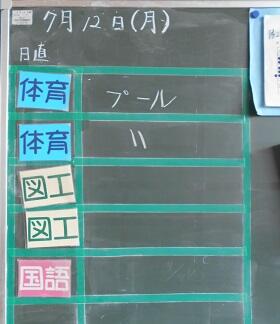 7月12日(月)
日直
体育 プール
体育 〃
図工
図工
国語